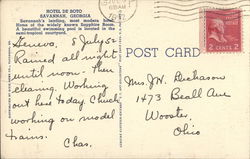 HOTEL DE SOTO
SAVANNAH, GEORGIA
Savannah's leading, most modern hotel.
Home of the widely known Sapphire Room.
A beautiful swimming pool is located in the
semi-tropical courtyard.
POST CARD
2 CENTS 2
Geneva, 5 July 52
Rained all night
until noon. Then
clearing. Working
out here today Chuck
working on model
trains.
Chas.
Mrs. J.W. Dickason
1473 Beall Ave
Wooster,
Ohio